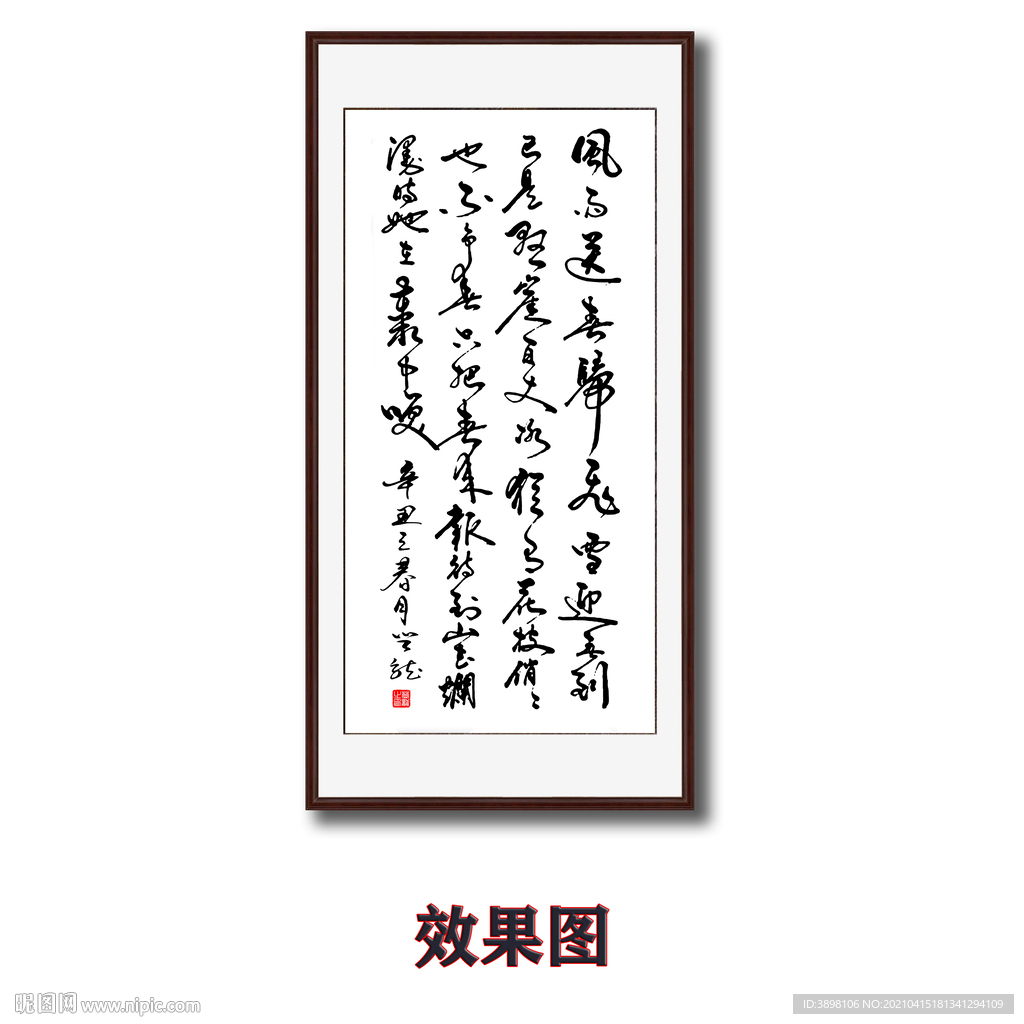 風雨送春歸飛雪迎春到
已是懸崖百丈冰猶有花枝俏〻
也不争春只把春來報待到山花爛
漫時她在叢中咲 辛丑 月
效果图
昵图网 www.nipic.com
ID:3898106 NO:20210415181341294109